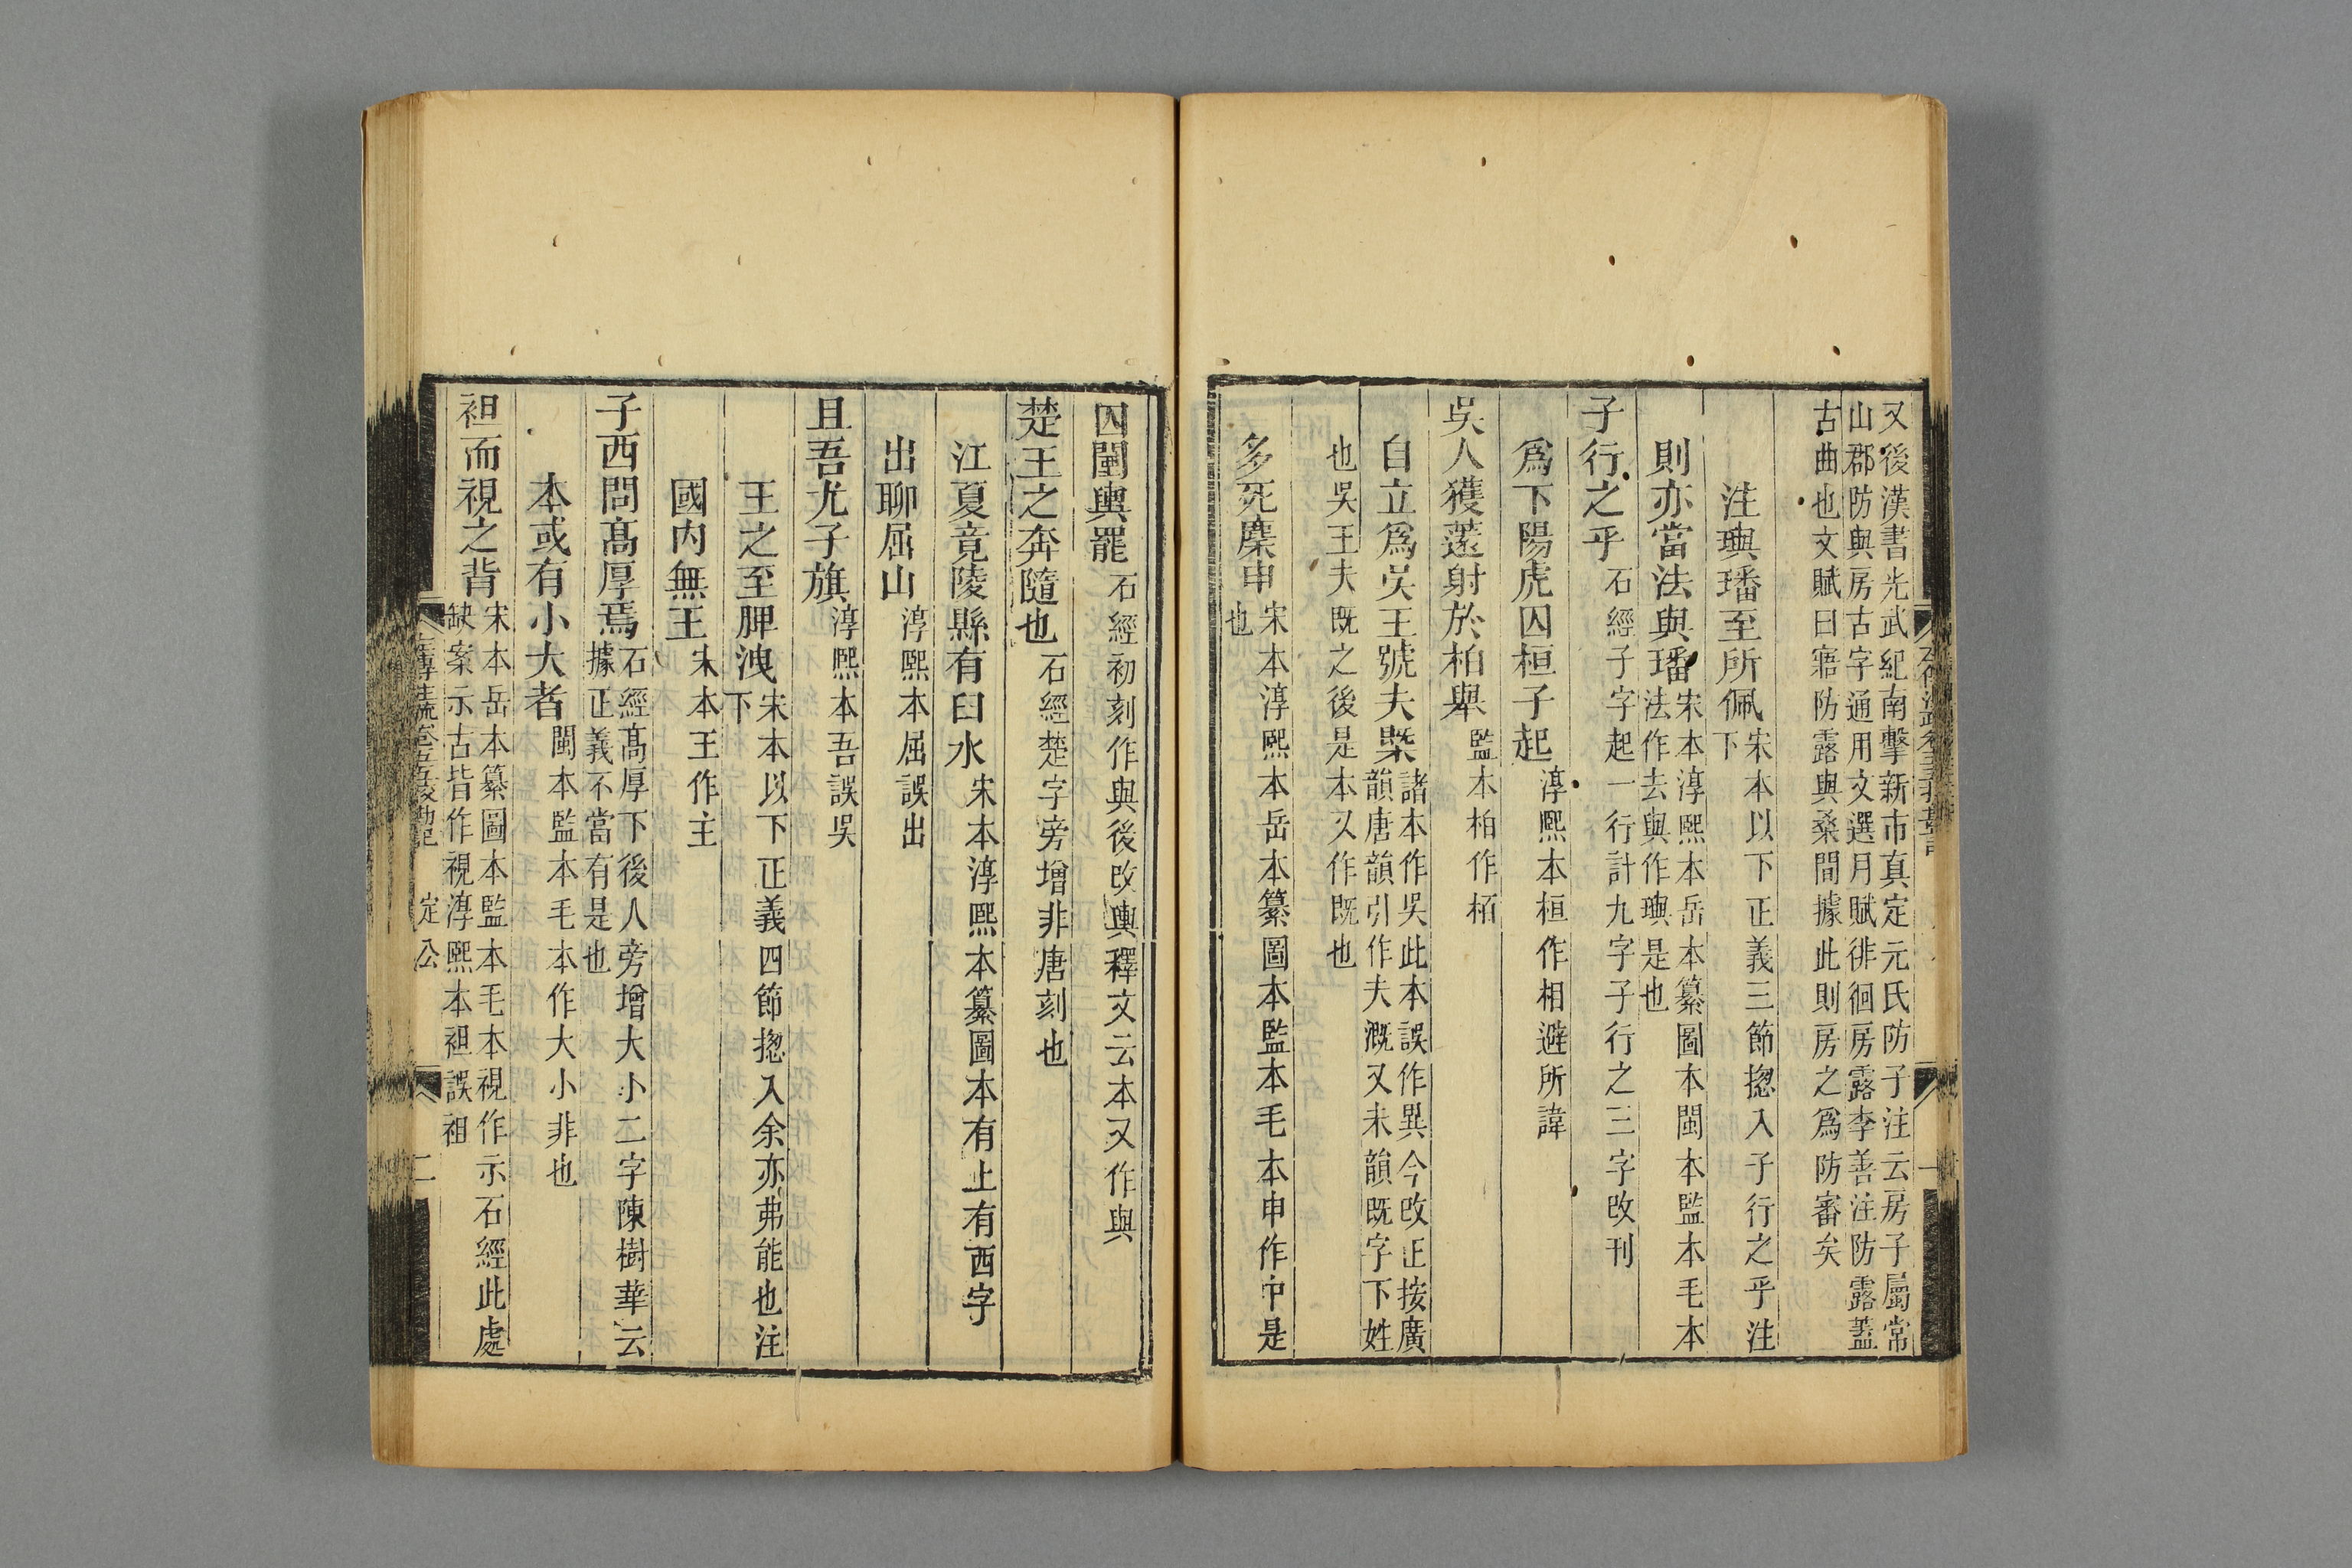 又後漢書光武紀南擊新市真定元氏防子注云房子屬常
山郡防與房古字通用文選月賦徘徊房露李善注防露蓋
古曲也文賦曰寤防露與桑間據此則房之爲防審矣
注璵璠至所佩宋本以下正義三節揔入子行之乎注
下
則亦當法與璠宋本淳熙本岳本纂圖本閩本監本毛本
法作去與作璵是也
子行之乎石經子字起一行計九字子行之三字改刊
爲下陽虎囚桓子起淳熙本桓作相避所諱
吳人獲薳射於柏舉監本柏作栢
自立爲吳王號夫㮣諸本作吳此本誤作異今改正按廣
韻唐韻引作夫溉又未韻旣字下姓
也吳王夫旣之後是本又作旣也
多死麇申宋本淳熙本岳本纂圖本監本毛本申作中是
也
囚闉輿罷石經初刻作與後改輿釋文云本又作與
楚王之奔隨也石經楚字旁增非唐刻也
江夏竟陵縣有臼水宋本淳熙本纂圖本有上有西字
出聊屈山淳熙本屈誤出
且吾尤子旗淳熙本吾誤吳
王之至脾洩宋本以下正義四節揔入余亦弗能也注
下
國內無王宋本王作主
子西問高厚焉石經高厚下後人旁增大小二字陳樹華云
據正義不當有是也
本或有小大者閩本監本毛本作大小非也
袒而視之背宋本岳本纂圖本監本毛本視作示石經此處
缺案示古皆作視淳熙本袒誤祖
左傳注疏卷五十五校勘記 定公 二